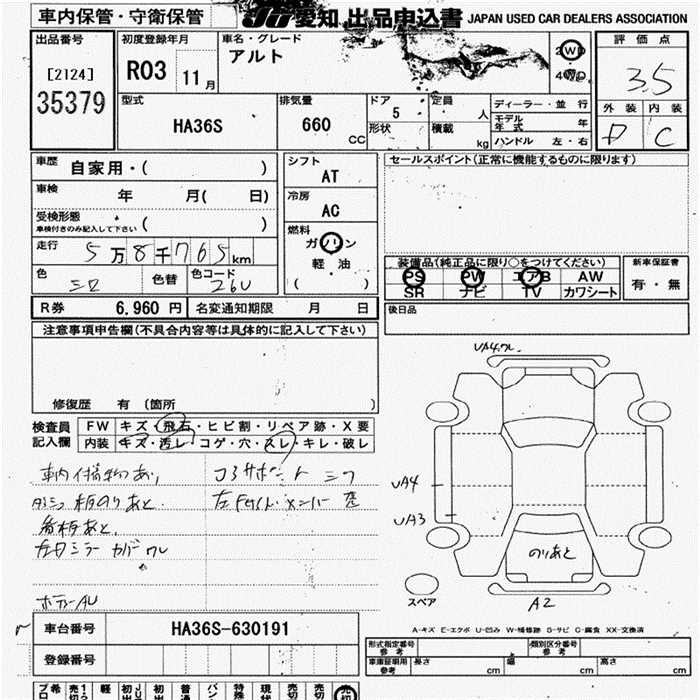 車内保管・守衛保管
JU愛知 出品申込書 JAPAN USED CAR DEALERS ASSOCIATION
出品番号
[2124]
35379
初度登録年月
R03 11月
車名・グレード
アルト
2WD
4WD
評価点
3.5
外装 内装
D C
型式
HA36S
排気量
660 CC
ドア
5
形状
定員 人
積載 kg
ディーラー・並行
モデル年式 年
ハンドル 左・右
車歴 自家用・( )
車検 年 月( 日)
受検形態
車検付きのみ記入して下さい ( )
走行 5万8千765km
色 シロ 色替 色コード 26U
シフト
AT
冷房
AC
燃料
ガソリン
軽・油
( )
セールスポイント(正常に機能するものに限ります)
装備品(純正品に限り○をつけてください)
PS PW エアB AW
SR ナビ TV カワシート
新車保証書
有・無
R券 6,960円 名変通知期限 月 日
後日品
注意事項申告欄(不具合内容等は具体的に記入して下さい)
修復歴 有 (箇所 )
検査員記入欄
FW キズ・飛石・ヒビ割・リペア跡・X要
内装 キズ・汚レ・コゲ・穴・スレ・キレ・破レ
車内 あり
のりあと
あと
ミラー カバー ワレ
コアサポート
左
ボデーAU
UA4
UA3
のりあと
A2
スペア
A-キズ E-エクボ U-凹み W-補修跡 S-サビ C-腐食 XX-交換済
車台番号 HA36S-630191
登録番号
型式指定番号 参考
類別区分番号 参考
車庫証明用 参考 長さ cm 幅 cm 高さ cm